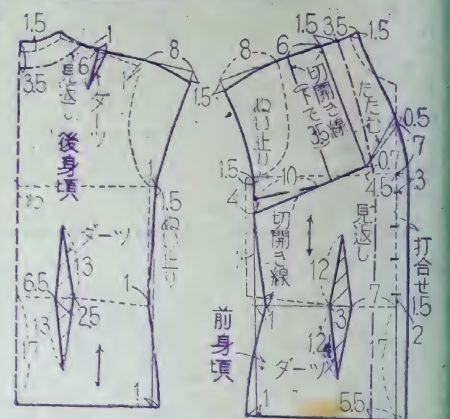 1.5
1
8
3.5
6
見返し
ダーツ
後身頃
1
1.5
ぬい止り
わ
ダーツ
3
6.5
2.5
13
17
1
1
1.5
3.5
1.5
6
8
1.5
切開き線
下で3.5
たたむ
ぬい止り
0.5
7
0.7
3
4.5
1.5
10
4
切開き線
見返し
打合せ1.5
12
7
3
2
1
前身頃
12
ダーツ
17
5.5
1